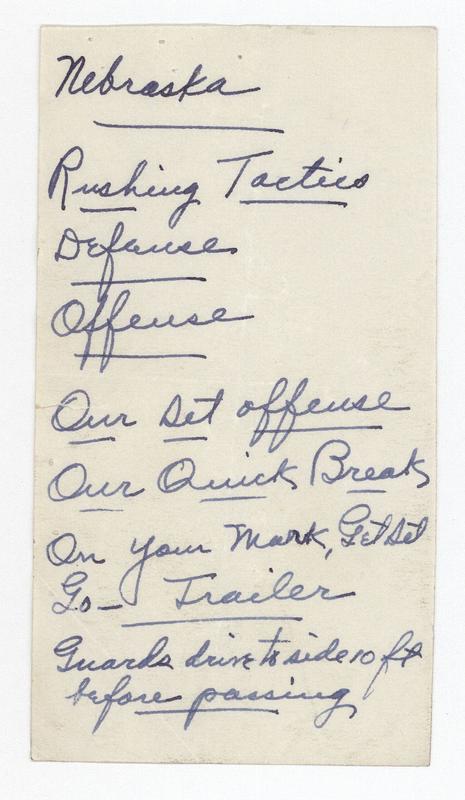 Nebraska
Rushing Tactics
Defense
Offense
Our Set offense
Our Quick Break
On Your Mark, Get Set
Go— Trailer
Guards drive to side 10 ft
before passing